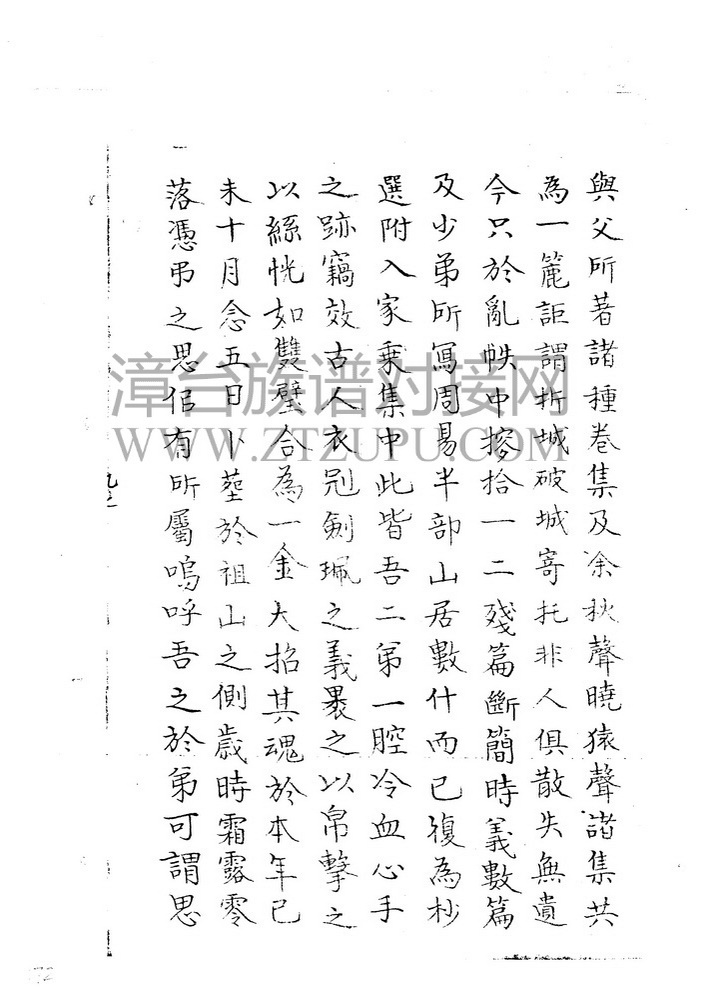 與父所著諸種卷集及余秋聲曉猿聲諸集共
為一簏詎謂折城破城寄托非人俱散失無遺
今只於亂帙中搜拾一二殘篇斷簡時義數篇
及少弟所寫周易半部山居數什而已復為抄
選附入家乘集中此皆吾二弟一腔冷血心手
之跡竊效古人衣冠劍珮之義褁之以帛擊之
以絲恍如雙璧合為一金大招其魂於本年已
未十月念五日卜塟於祖山之側歲時霜露零
落憑弔之思佀有所屬嗚呼吾之於弟可謂思
漳台族谱对接网
WWW.ZTZUPU.COM